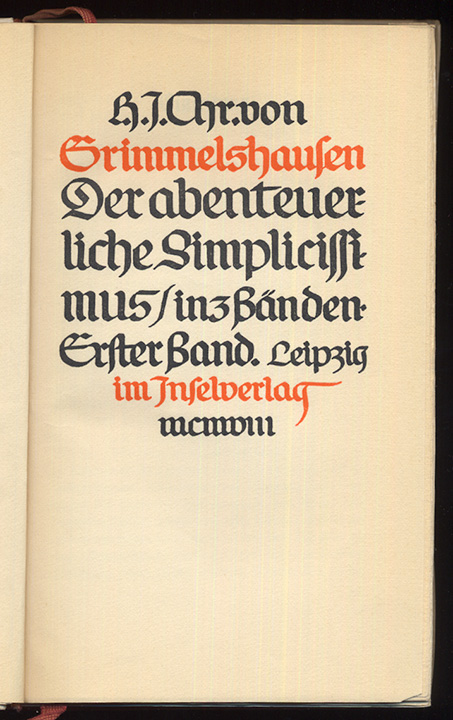 H.J.Chr.von
Grimmelshausen
Der abenteuer-
liche Simplicissi-
mus/in 3 Bänden.
Erster Band. Leipzig
im Inselverlag
mcmviii